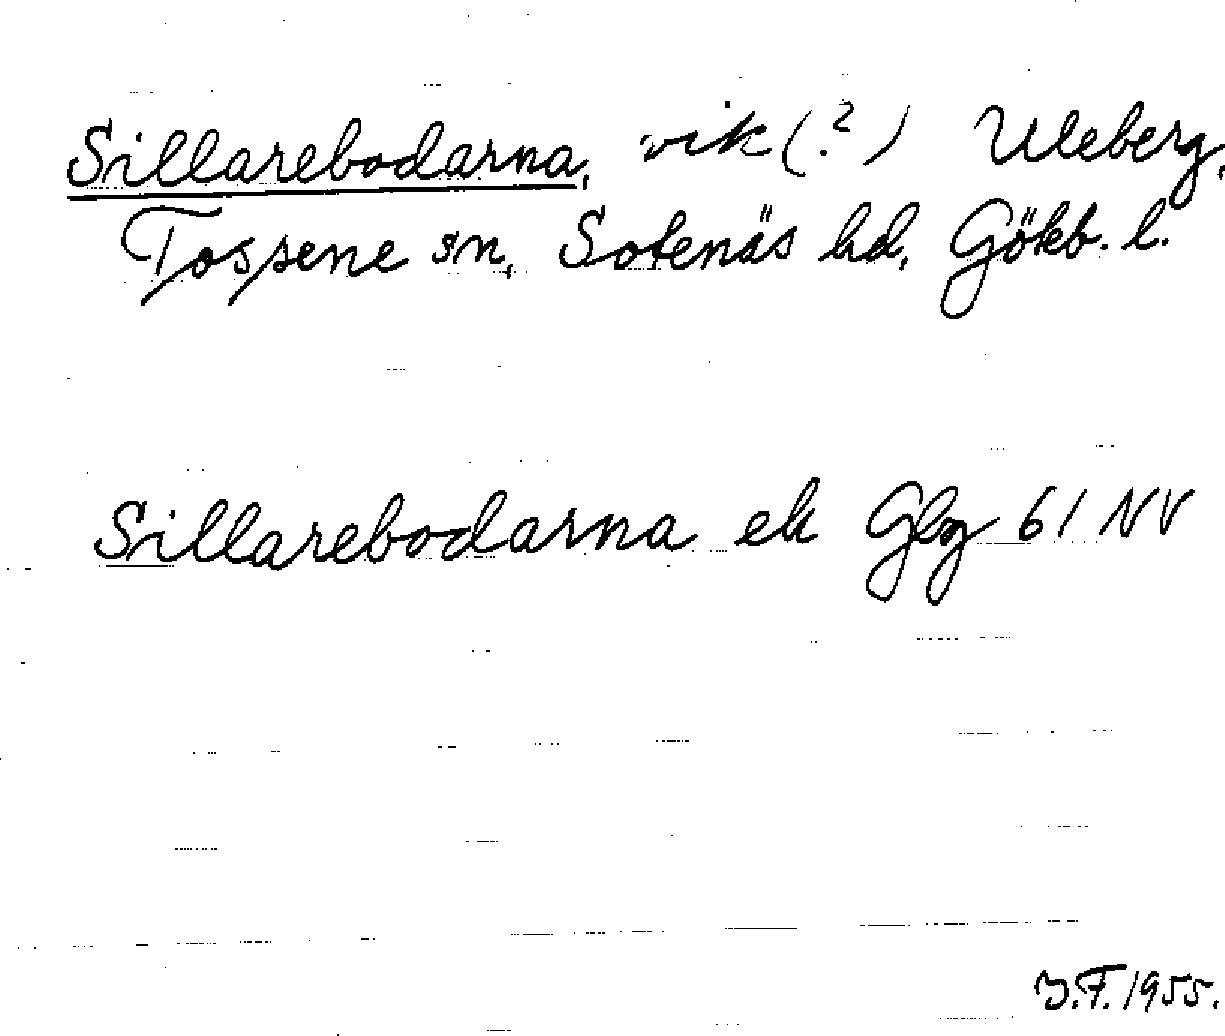 Sillarebodarna, vik (?) Uleberg,
Tossene sn, Sotenäs hd, Gökb. l.
Sillarebodarna ek Glg 61 NV
J.F. 1955.